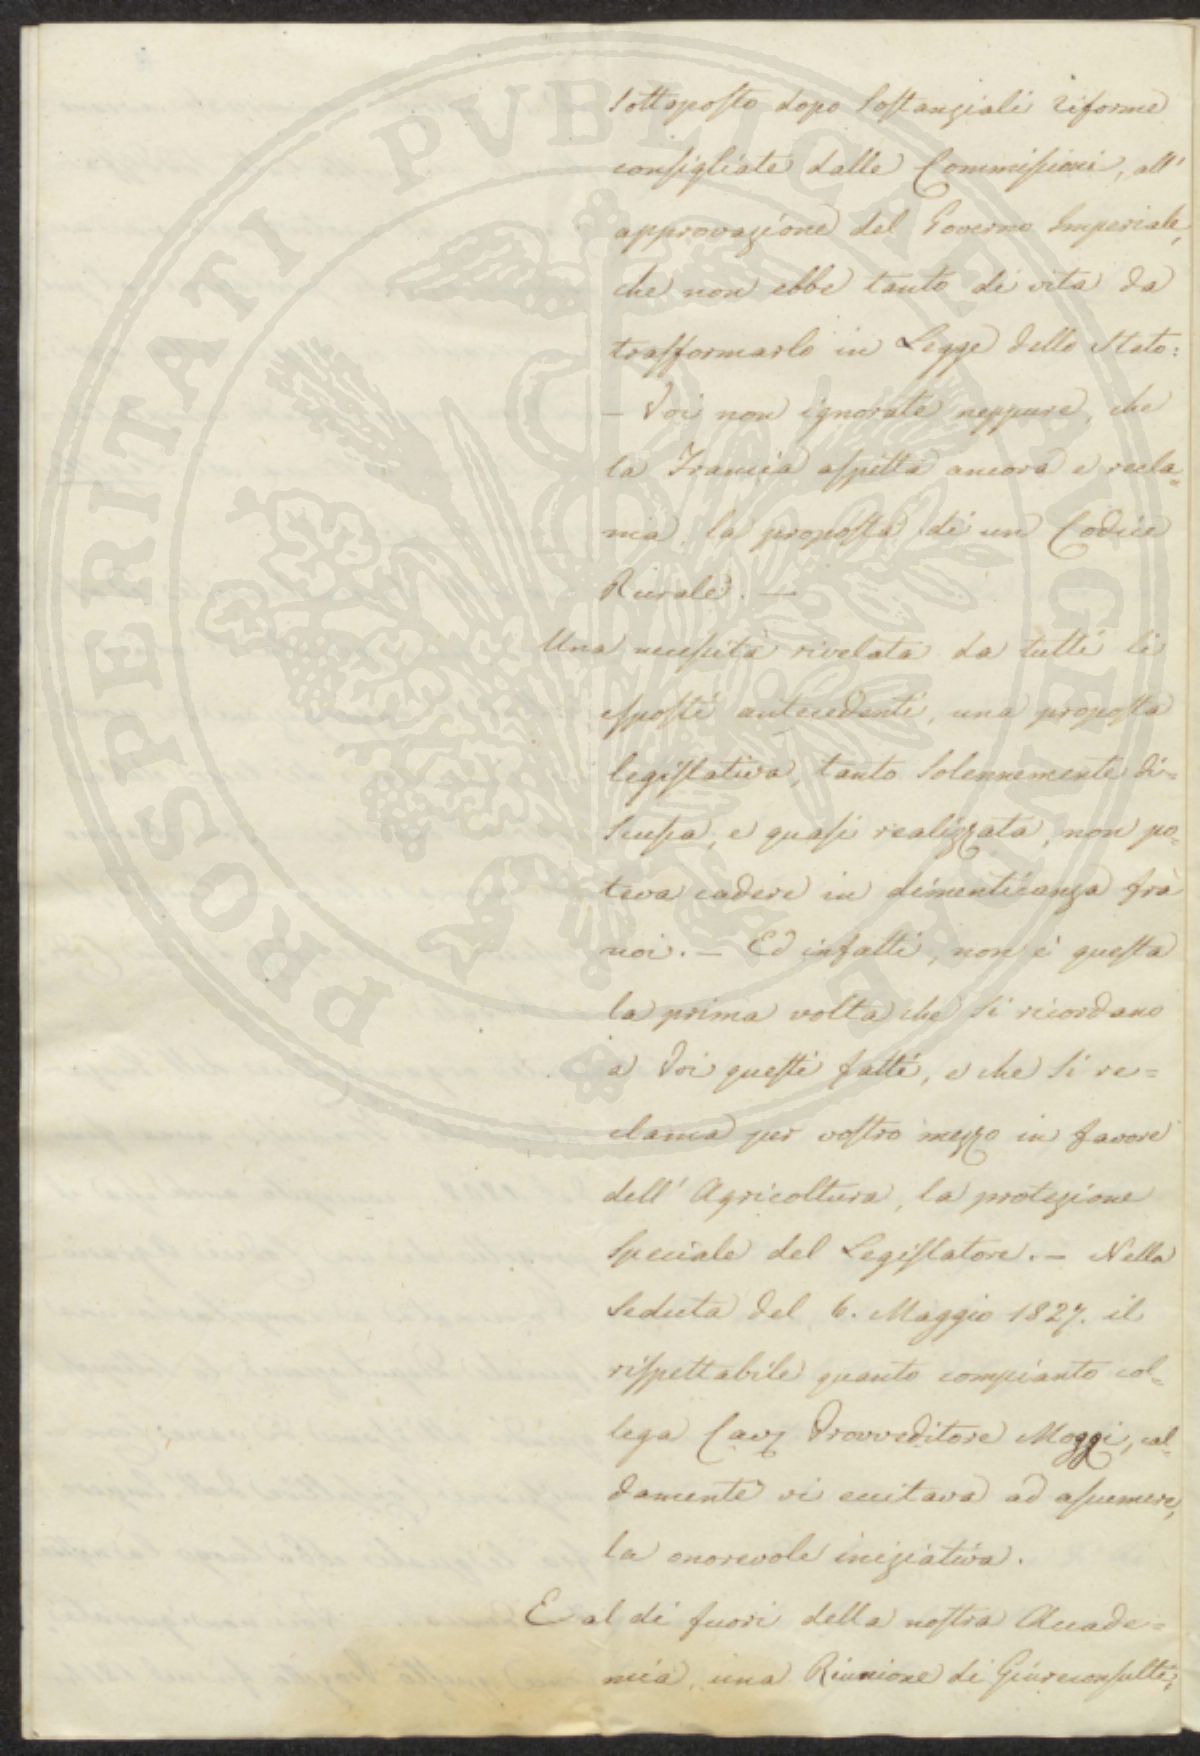 Sottoposto dopo sostanziali riforme
consigliate dalle Commissioni, all'
approvazione del Governo Imperiale,
che non ebbe tanto di vita da
trasformarlo in Legge dello Stato:
— Voi non ignorate neppure, che
la Francia aspetta ancora e recla=
ma, la proposta di un Codice
Rurale. —
Una necessità rivelata da tutti li
esposti antecedenti, una proposta
legislativa, tanto solennemente di=
scussa, e quasi realizzata, non po=
teva cadere in dimenticanza frà
noi. — Ed infatti, non è questa
la prima volta che si ricordano
a Voi questi fatti, e che si re=
clama per vostro mezzo in favore
dell' Agricoltura, la protezione
speciale del Legislatore. — Nella
Seduta del 6. Maggio 1827. il
rispettabile quanto compianto col=
lega Cav. Provveditore Maggi, cal=
damente vi eccitava ad assumere,
la onorevole iniziativa.
E al di fuori della nostra Accade=
mia, una Riunione di Giureconsulti,
PROSPERITATI PVBLICAE AVGENDAE